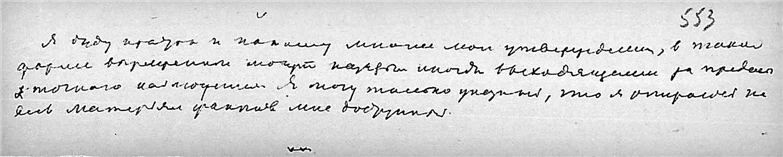 553
Я буду краток и потому многие мои утверждения, в такой
форме выраженные могут казаться иногда выходящими за пределы
точного наблюдения Я могу только указать, что я опираюсь на
весь материал фактов мне доступный.